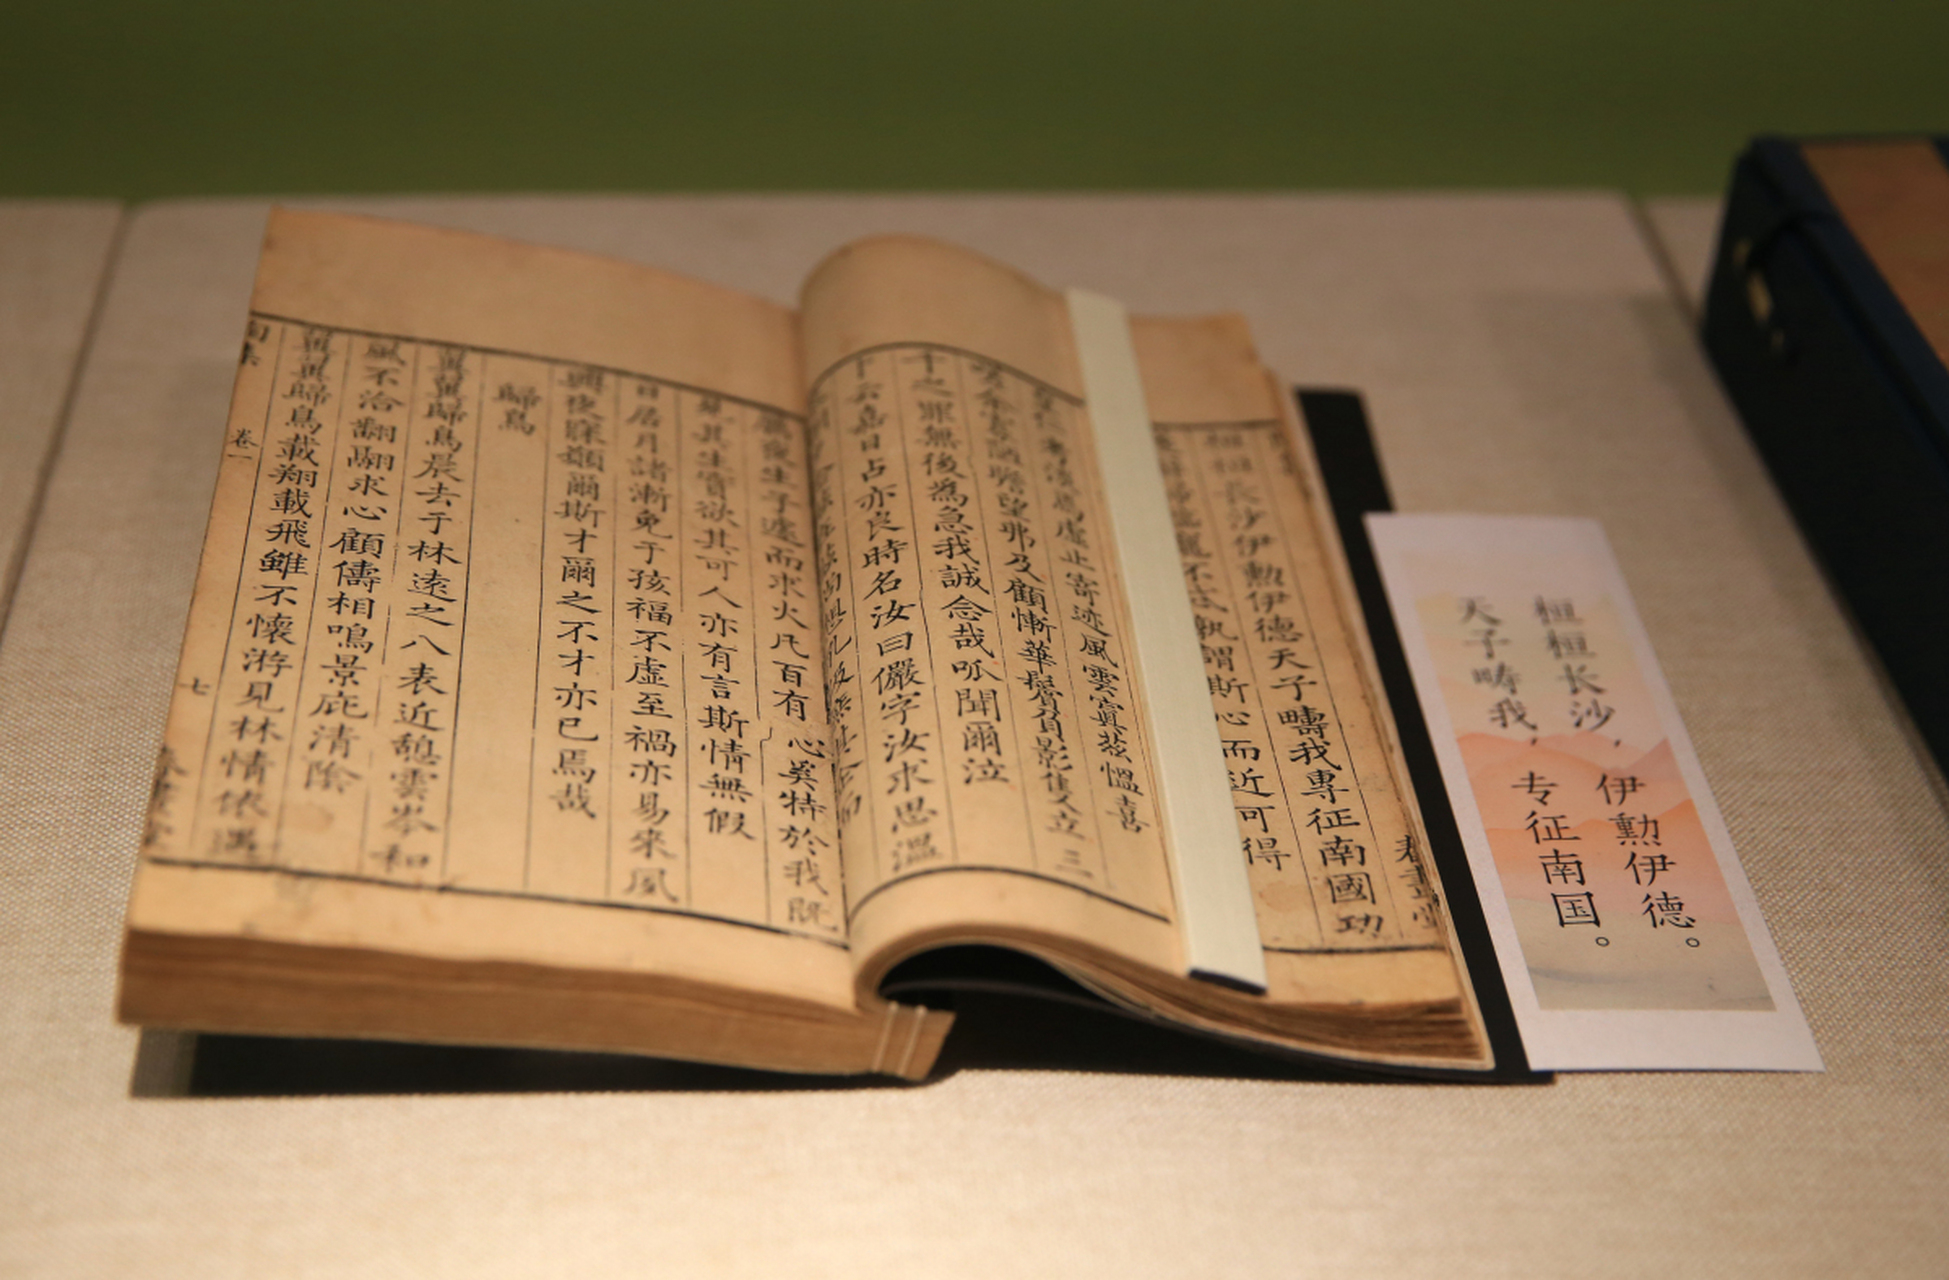 桓桓長沙伊勳伊德天子疇我專征南國功
寵不忒孰謂斯心而近可得
仁考淡焉虛止寄迹風雲寘茲愠喜
嗟余寡陋瞻望弗及顧慚華鬢負影隻立三
千之罪無後為急我誠念哉呱聞爾泣
卜云嘉日占亦良時名汝曰儼字汝求思溫
厲夜生子遽而求火凡百有心奚特於我既
見其生實欲其可人亦有言斯情無假
日居月諸漸免于孩福不虛至禍亦易來夙
興夜寐願爾斯才爾之不才亦已焉哉
歸鳥
翼翼歸鳥晨去于林遠之八表近憩雲岑和
風不洽翻翮求心顧儔相鳴景庇清陰
翼翼歸鳥載翔載飛雖不懷游見林情依遇
陶集 卷一 七
桓桓长沙，伊勲伊德。
天子畴我，专征南国。